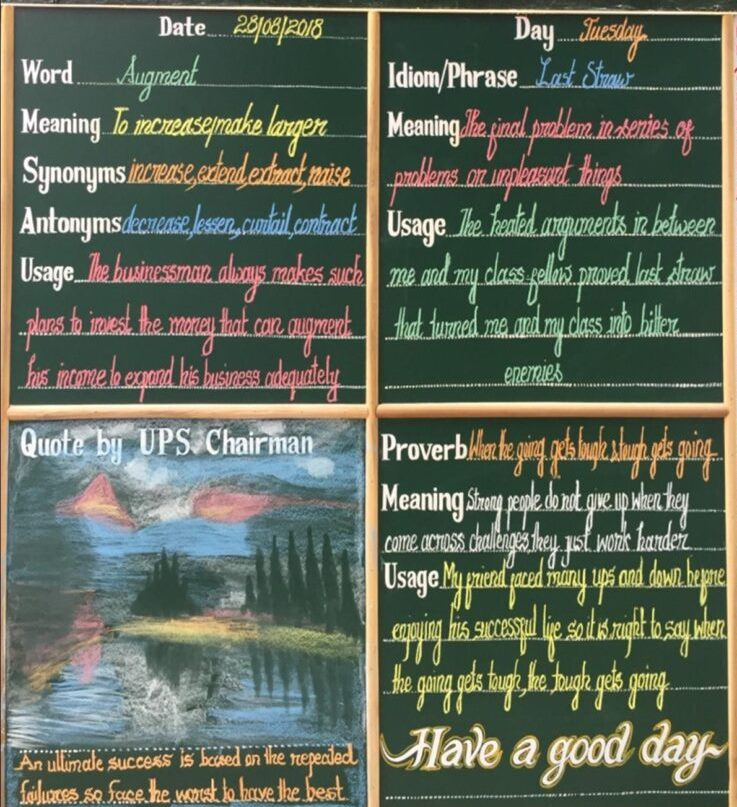 Date 28/08/2018
Word Augment
Meaning To increase/make larger
Synonyms increase, extend, extract, raise
Antonyms decrease, lessen, curtail, contract
Usage The businessman always makes such
plans to invest the money that can augment
his income to expand his business adequately
Day Tuesday
Idiom/Phrase Last Straw
Meaning The final problem in series of
problems or unpleasant things
Usage The heated arguments in between
me and my class fellow proved last straw
that turned me and my class into bitter
enemies
Quote by UPS Chairman
An ultimate success is based on the repeated
failures so face the worst to have the best
Proverb When the going gets tough, tough gets going
Meaning Strong people do not give up when they
come across challenges, they just work harder
Usage My friend faced many ups and down before
enjoying his successful life so it is right to say when
the going gets tough, the tough gets going.
Have a good day